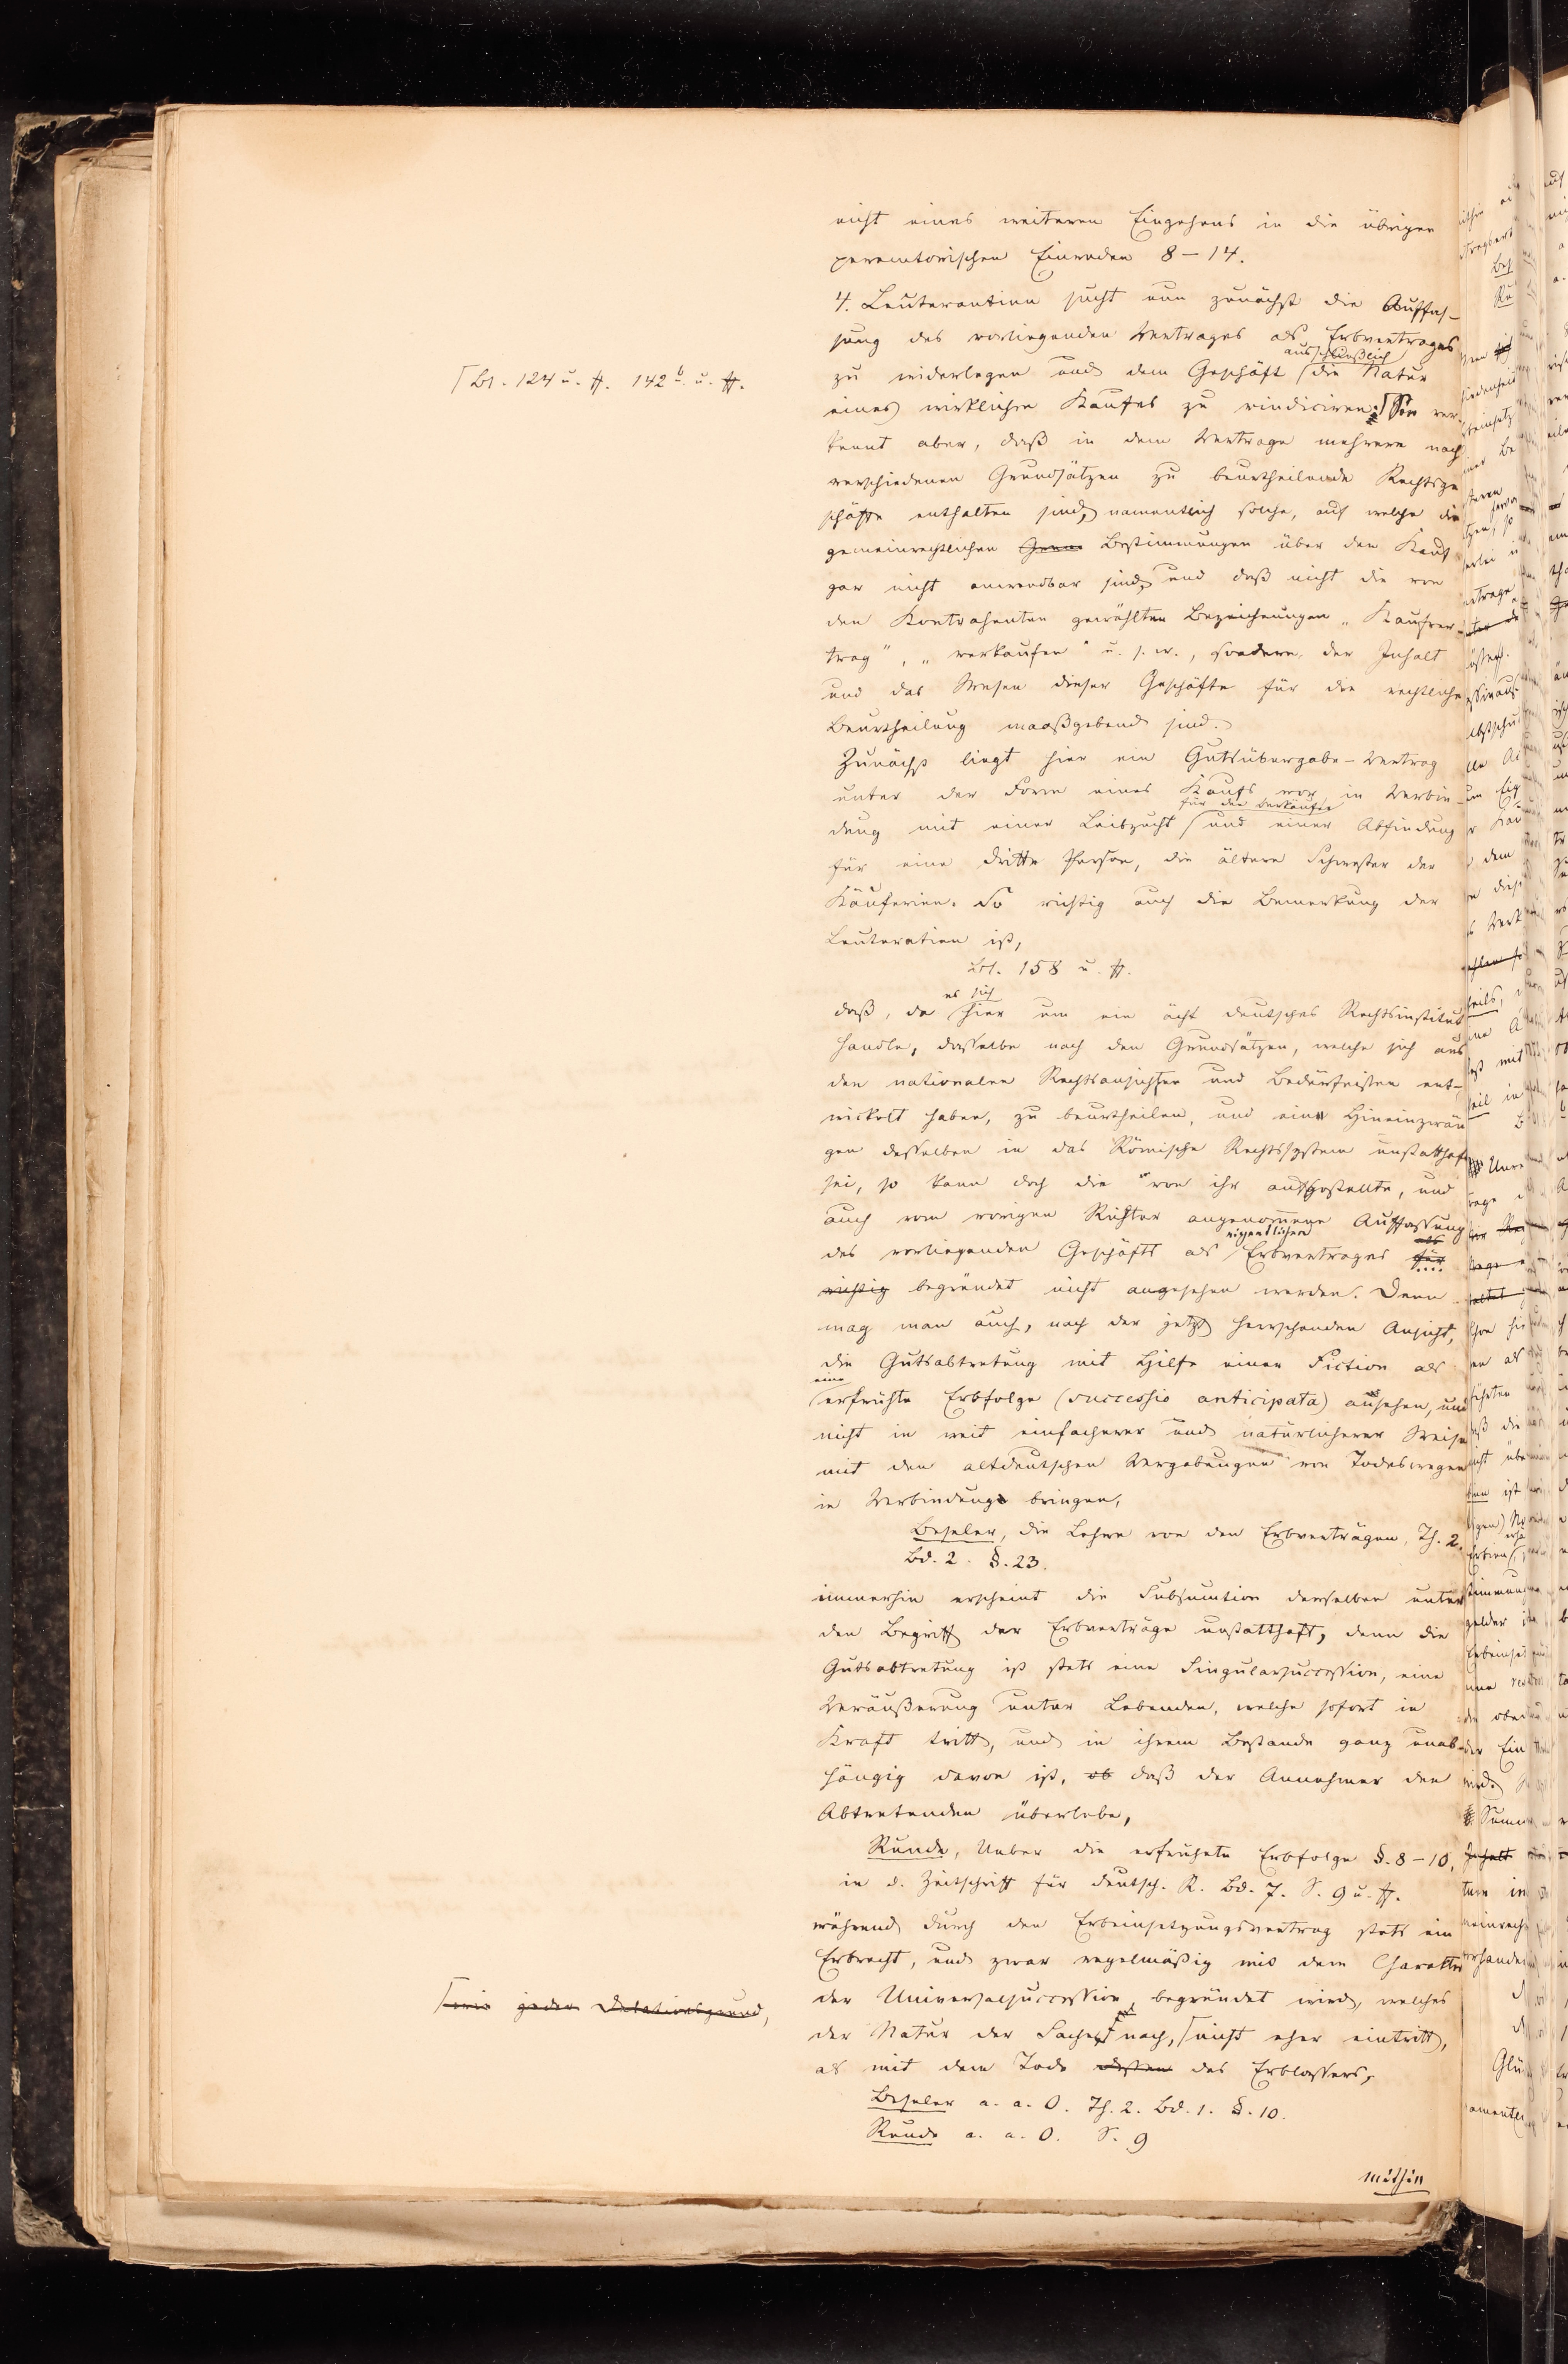 nicht eines weiteren Eingehens in die übrigen
peremtorischen Einreden 8–14.
4. Leuterantinn sucht nun zunächst die Auffas-
sung des vorliegenden Vertrages als Erbvertrages
ausschließlich
zu widerlegen und dem Geschäft die Natur
⌈Bl. 124 u. ff. 142 b u. ff.
eines wirklichen Kaufes zu vindiciren. ⌈Sie ver-
kennt aber, daß in dem Vertrage mehrere nach
verschiedenen Grundsätzen zu beurtheilende Rechtsge
schäfte enthalten sind, namentlich solche, auf welche die
gemeinrechtlichen Bestimmungen über den Kauf
gar nicht anwendbar sind, und daß nicht die von
den Kontrahenten gewählten Bezeichnungen „Kaufver-
trag“, „verkaufen“ u. s. w., sondern der Inhalt
und das Wesen dieser Geschäfte für die rechtliche
Beurtheilung maaßgebend sind.
Zunächst liegt hier ein Gutsübergabe-Vertrag
unter der Form eines Kaufs vor in Verbin-
für den Verkäufer
dung mit einer Leibzucht und einer Abfindung
für eine dritte Person, die ältere Schwester der
Käuferinn. So richtig auch die Bemerkung der
Leuteratinn ist,
Bl. 158 u. ff.
es sich
daß, da hier um ein ächt deutsches Rechtsinstitut
handle, dasselbe nach den Grundsätzen, welche sich aus
den nationalen Rechtsansichten und Bedürfnissen ent-
wickelt haben, zu beurtheilen, und ein Hineinzwän
gen desselben in das Römische Rechtssystem unstatthaft
sei, so kann doch die von ihr aufgestellte, und
auch vom vorigen Richter angenommene Auffassung
eigentlichen als
des vorliegenden Geschäfts als Erbvertrages für
richtig begründet nicht angesehen werden. Denn
mag man auch, nach der jetzt herrschenden Ansicht,
die Gutsabtretung mit Hilfe einer Fiction als
eine
verfrühte Erbfolge (successio anticipata) ansehen, und
nicht in weit einfacherer und natürlicherer Weise
mit den altdeutschen Vergabungen von Todeswegen
in Verbindung bringen,
Beseler, die Lehre von den Erbverträgen, Th. 2.
Bd. 2. §. 23.
immerhin erscheint die Subsumtion derselben unter
den Begriff der Erbverträge unstatthaft, denn die
Gutsabtretung ist stets eine Singularsuccession, eine
Veräußerung unter Lebenden, welche sofort in
Kraft tritt, und in ihrem Bestande ganz unab-
hängig davon ist, ob daß der Annehmer den
Abtretenden überlebe,
Runde, Ueber die verfrühete Erbfolge §. 8–10,
in d. Zeitschrift für deutsch. R. Bd. 7. S. 9 u. ff.
während durch den Erbeinsetzungsvertrag stets ein
Erbrecht, und zwar regelmäßig mit dem Charakter
der Universalsuccession begründet wird, welches
⌈wie jeder Delationsgrund,
der Natur der Sache nach, ⌈nicht eher eintritt,
als mit dem Tode dessen des Erblassers,
Beseler a. a. O. Th. 2. Bd. 1. §. 10.
Runde a. a. O. S. 9
mithin